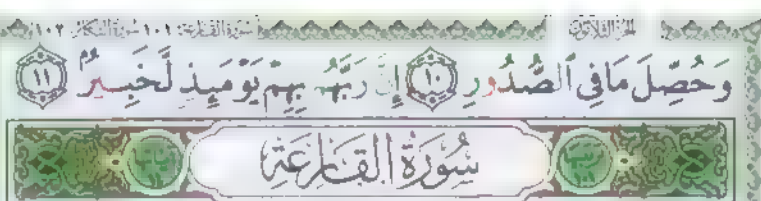 الجزء الثلاثون سورة القارعة ١٠١ سورة التكاثر ١٠٢
وَحُصِّلَ مَا فِي ٱلصُّدُورِ ١٠ إِنَّ رَبَّهُم بِهِمۡ يَوۡمَئِذٖ لَّخَبِيرُۢ ١١
سُورَةُ القَارِعَةِ